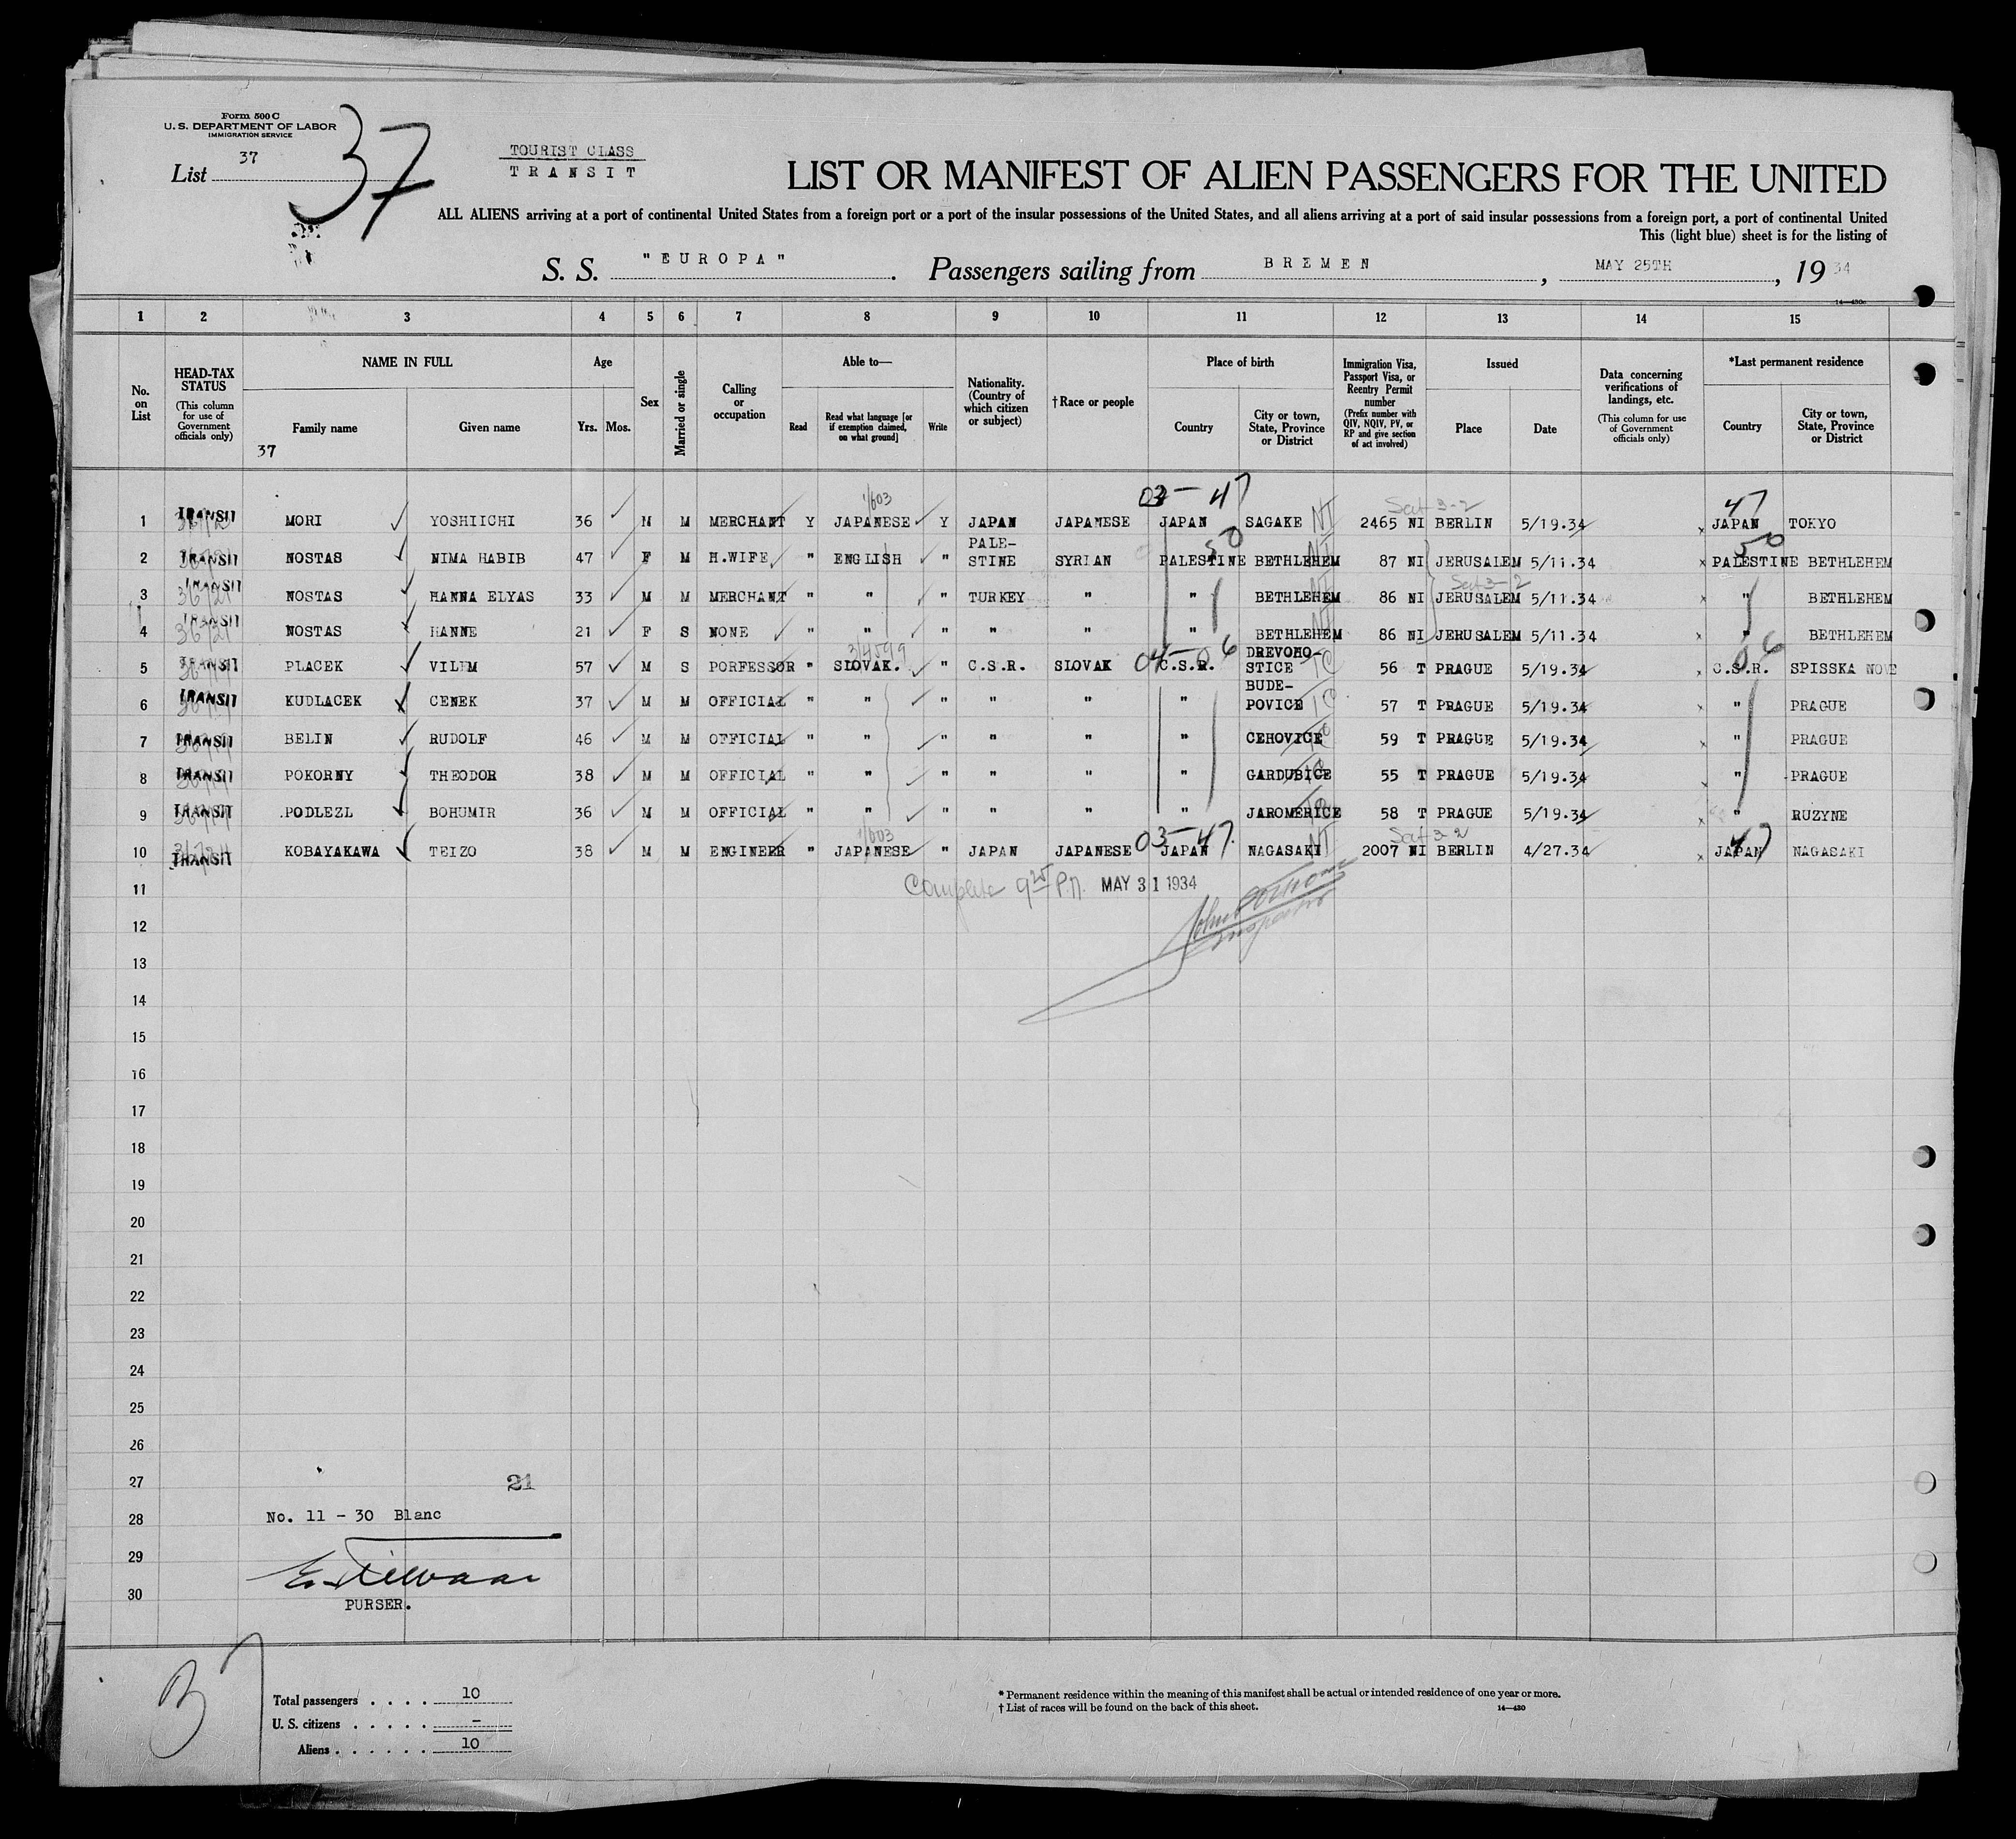 Form 500 C
U. S. DEPARTMENT OF LABOR
IMMIGRATION SERVICE
List 37
37
TOURIST CLASS
TRANSIT
LIST OR MANIFEST OF ALIEN PASSENGERS FOR THE UNITED
ALL ALIENS arriving at a port of continental United States from a foreign port or a port of the insular possessions of the United States, and all aliens arriving at a port of said insular possessions from a foreign port, a port of continental United
This (light blue) sheet is for the listing of
S. S. "EUROPA". Passengers sailing from BREMEN, MAY 25TH, 1934
14—430
1 2 3 4 5 6 7 8 9 10 11 12 13 14 15
No. on List
HEAD-TAX STATUS (This column for use of Government officials only)
NAME IN FULL
Family name Given name
37
Age
Yrs. Mos.
Sex
Married or single
Calling or occupation
Able to—
Read Read what language [or if exemption claimed, on what ground] Write
Nationality. (Country of which citizen or subject)
†Race or people
Place of birth
Country City or town, State, Province or District
Immigration Visa, Passport Visa, or Reentry Permit number (Prefix number with QIV, NQIV, PV, or RP and give section of act involved)
Issued
Place Date
Data concerning verifications of landings, etc. (This column for use of Government officials only)
*Last permanent residence
Country City or town, State, Province or District
1 TRANSIT MORI YOSHIICHI 36 M M MERCHANT Y JAPANESE Y JAPAN JAPANESE JAPAN SAGAKE NI 2465 NI BERLIN 5/19.34 JAPAN TOKYO
03 - 47 47
2 TRANSIT NOSTAS NIMA HABIB 47 F M H.WIFE " ENGLISH " PALE-STINE SYRIAN PALESTINE BETHLEHEM 87 NI JERUSALEM 5/11.34 PALESTINE BETHLEHEM
50 50
3 TRANSIT NOSTAS HANNA ELYAS 33 M M MERCHANT " " " TURKEY " " BETHLEHEM 86 NI JERUSALEM 5/11.34 " BETHLEHEM
4 TRANSIT NOSTAS HANNE 21 F S NONE " " " " " " BETHLEHEM 86 NI JERUSALEM 5/11.34 " BETHLEHEM
5 TRANSIT PLACEK VILEM 57 M S PORFESSOR " SLOVAK. " C.S.R. SLOVAK C.S.R. DREVOHO-STICE 56 T PRAGUE 5/19.34 C.S.R. SPISSKA NOVE
04 - 06 06
6 TRANSIT KUDLACEK CENEK 37 M M OFFICIAL " " " " " " BUDE-POVICE 57 T PRAGUE 5/19.34 " PRAGUE
7 TRANSIT BELIN RUDOLF 46 M M OFFICIAL " " " " " " CEHOVICE 59 T PRAGUE 5/19.34 " PRAGUE
8 TRANSIT POKORNY THEODOR 38 M M OFFICIAL " " " " " " GARDUBICE 55 T PRAGUE 5/19.34 " PRAGUE
9 TRANSIT PODLEZL BOHUMIR 36 M M OFFICIAL " " " " " " JAROMERICE 58 T PRAGUE 5/19.34 " RUZYNE
10 TRANSIT KOBAYAKAWA TEIZO 38 M M ENGINEER " JAPANESE " JAPAN JAPANESE JAPAN NAGASAKI NI 2007 NI BERLIN 4/27.34 JAPAN NAGASAKI
03 - 47 47
11 Complete 9 25 P.M. MAY 31 1934
12 Inspector
13
14
15
16
17
18
19
20
21
22
23
24
25
26
27 21
28 No. 11 - 30 Blanc
29
30 PURSER.
Total passengers . . . . 10
U. S. citizens . . . . . –
Aliens . . . . . . 10
* Permanent residence within the meaning of this manifest shall be actual or intended residence of one year or more.
† List of races will be found on the back of this sheet. 14—430